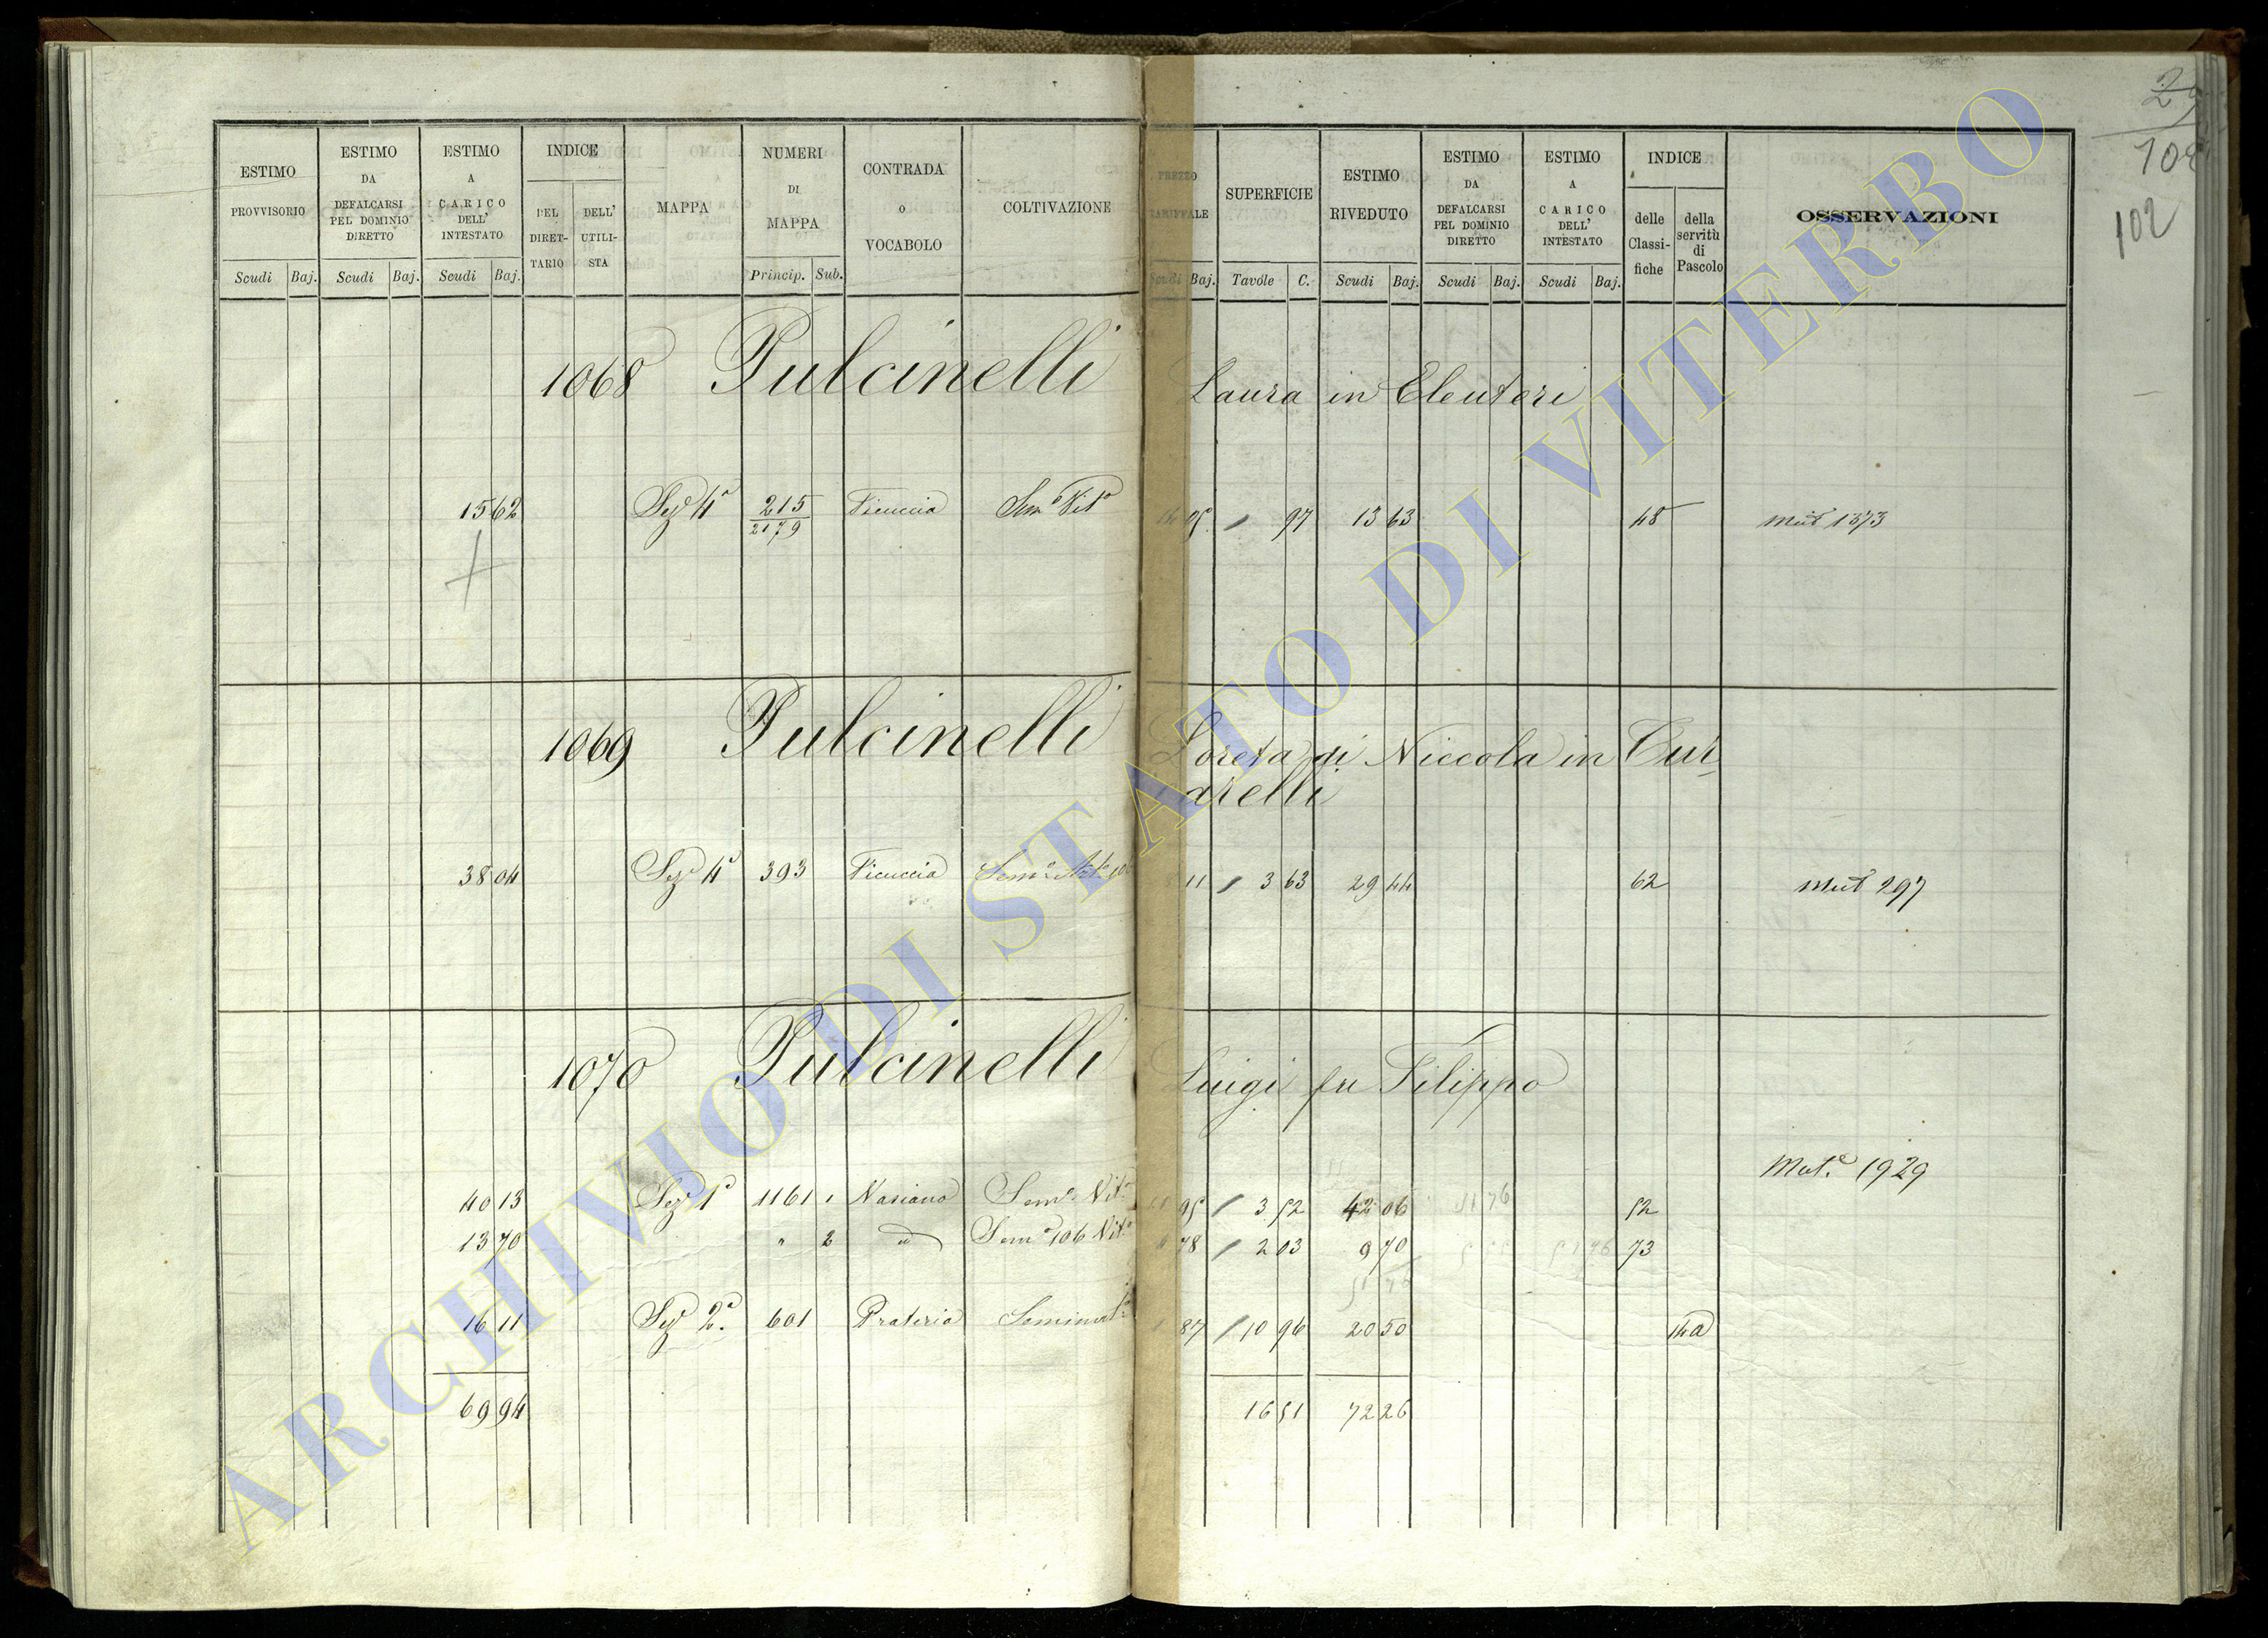 2
2
108
102
ESTIMO PROVVISORIO
ESTIMO DA DEFALCARSI PEL DOMINIO DIRETTO
ESTIMO A CARICO DELL' INTESTATO
INDICE
DEL DIRET-TARIO
DELL' UTILI-STA
MAPPA
NUMERI DI MAPPA
CONTRADA O VOCABOLO
COLTIVAZIONE
PREZZO TARIFFALE
SUPERFICIE
ESTIMO RIVEDUTO
ESTIMO DA DEFALCARSI PEL DOMINIO DIRETTO
ESTIMO A CARICO DELL' INTESTATO
INDICE
delle Classi-fiche
della servitù di Pascolo
OSSERVAZIONI
Scudi Baj. Scudi Baj. Scudi Baj. Princip. Sub. Scudi Baj. Tavole C. Scudi Baj. Scudi Baj. Scudi Baj.
1068 Pulcinelli Laura in Eleuteri
15 62 Sez. 4a 215/2179 Ficuccia Semo Vito 14 05 / 97 13 63 48 Mut 1373
1069 Pulcinelli Loreta di Niccola in Cur
darelli
38 04 Sez. 4a 393 Ficuccia Semo 11 / 3 63 29 44 62 Mut 297
1070 Pulcinelli Luigi fu Filippo
Mut.e 1929
40 13 Sez. 1a 1161 1 Nasiano Semo Vito 95 / 3 52 42 06 52
13 70 " 2 Semo 106 Vito 78 / 2 03 9 70 73
16 11 Sez. 2a 601 Prateria 87 / 10 96 20 50 14a
69 94 16 51 72 26
ARCHIVIO DI STATO DI VITERBO